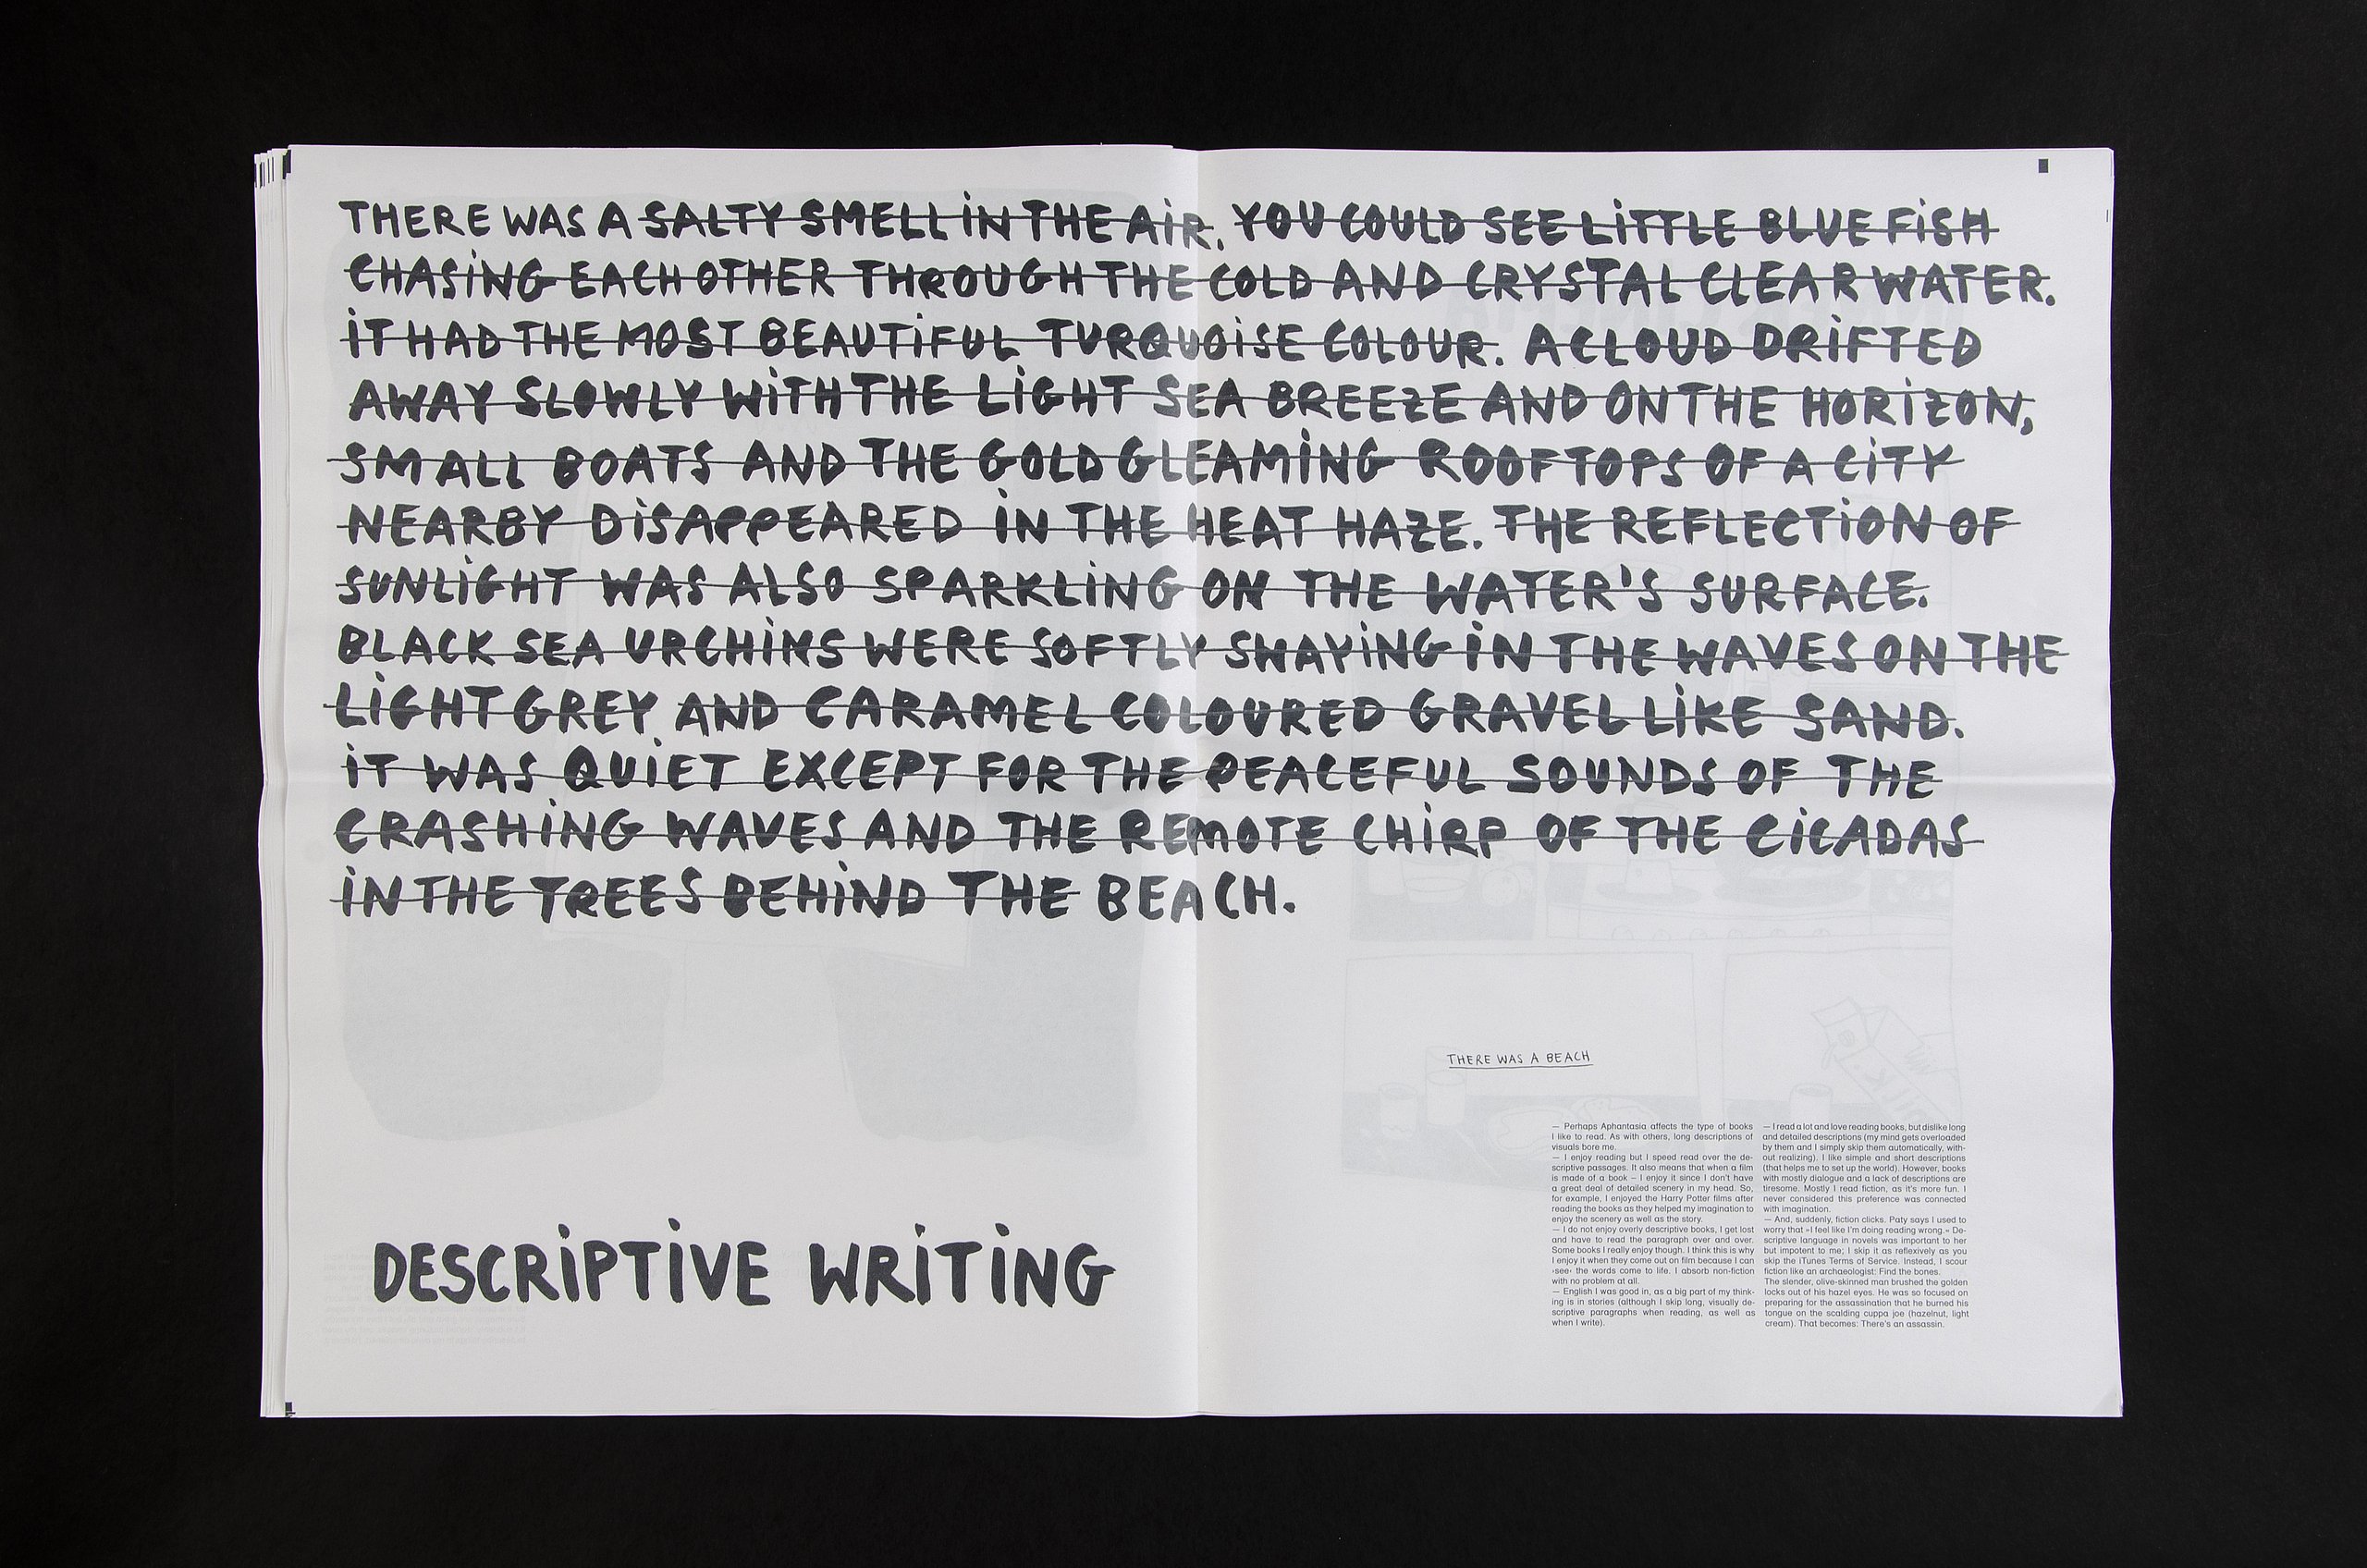 THERE WAS A SALTY SMELL IN THE AIR. YOU COULD SEE LITTLE BLUE FISH
CHASING EACH OTHER THROUGH THE COLD AND CRYSTAL CLEAR WATER.
IT HAD THE MOST BEAUTIFUL TURQUOISE COLOUR. A CLOUD DRIFTED
AWAY SLOWLY WITH THE LIGHT SEA BREEZE AND ON THE HORIZON,
SMALL BOATS AND THE GOLD GLEAMING ROOFTOPS OF A CITY
NEARBY DISAPPEARED IN THE HEAT HAZE. THE REFLECTION OF
SUNLIGHT WAS ALSO SPARKLING ON THE WATER'S SURFACE.
BLACK SEA URCHINS WERE SOFTLY SWAYING IN THE WAVES ON THE
LIGHT GREY AND CARAMEL COLOURED GRAVEL LIKE SAND.
IT WAS QUIET EXCEPT FOR THE PEACEFUL SOUNDS OF THE
CRASHING WAVES AND THE REMOTE CHIRP OF THE CICADAS
IN THE TREES BEHIND THE BEACH.
DESCRIPTIVE WRITING
THERE WAS A BEACH
— Perhaps Aphantasia affects the type of books
I like to read. As with others, long descriptions of
visuals bore me.
— I enjoy reading but I speed read over the de-
scriptive passages. It also means that when a film
is made of a book – I enjoy it since I don't have
a great deal of detailed scenery in my head. So,
for example, I enjoyed the Harry Potter films after
reading the books as they helped my imagination to
enjoy the scenery as well as the story.
— I do not enjoy overly descriptive books, I get lost
and have to read the paragraph over and over.
Some books I really enjoy though. I think this is why
I enjoy it when they come out on film because I can
›see‹ the words come to life. I absorb non-fiction
with no problem at all.
— English I was good in, as a big part of my think-
ing is in stories (although I skip long, visually de-
scriptive paragraphs when reading, as well as
when I write).
— I read a lot and love reading books, but dislike long
and detailed descriptions (my mind gets overloaded
by them and I simply skip them automatically, with-
out realizing). I like simple and short descriptions
(that helps me to set up the world). However, books
with mostly dialogue and a lack of descriptions are
tiresome. Mostly I read fiction, as it's more fun. I
never considered this preference was connected
with imagination.
— And, suddenly, fiction clicks. Paty says I used to
worry that »I feel like I'm doing reading wrong.« De-
scriptive language in novels was important to her
but impotent to me; I skip it as reflexively as you
skip the iTunes Terms of Service. Instead, I scour
fiction like an archaeologist: Find the bones.
The slender, olive-skinned man brushed the golden
locks out of his hazel eyes. He was so focused on
preparing for the assassination that he burned his
tongue on the scalding cuppa joe (hazelnut, light
cream). That becomes: There's an assassin.